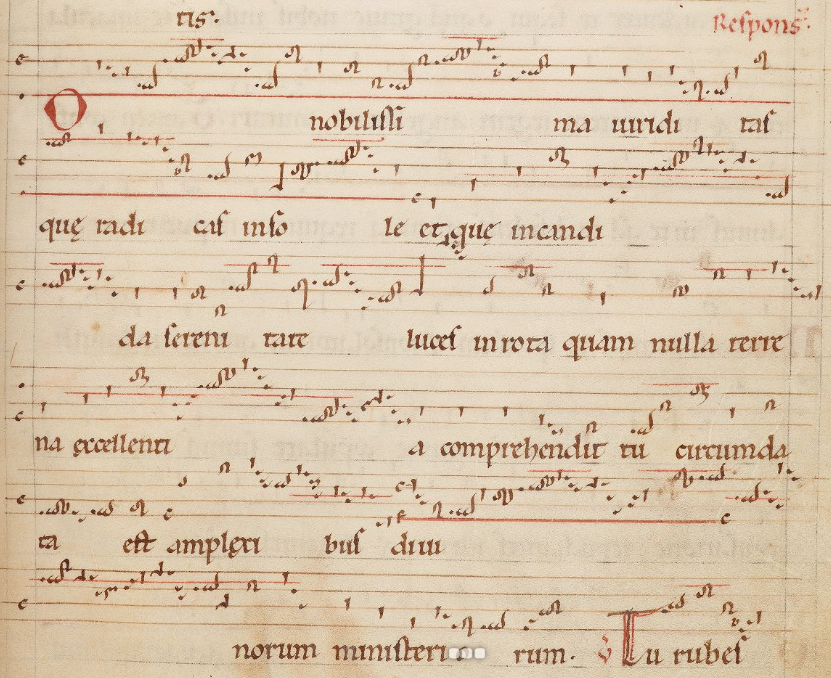 tis. Respons̄.
O nobilissi ma uiridi tas
quę radi cas inso le et quę in candi
da sereni tate luces in rota quam nulla terre
na excellenti a comprehendit tu circumda
ta est amplexi bus diui
norum ministeri o rum. Tu rubes